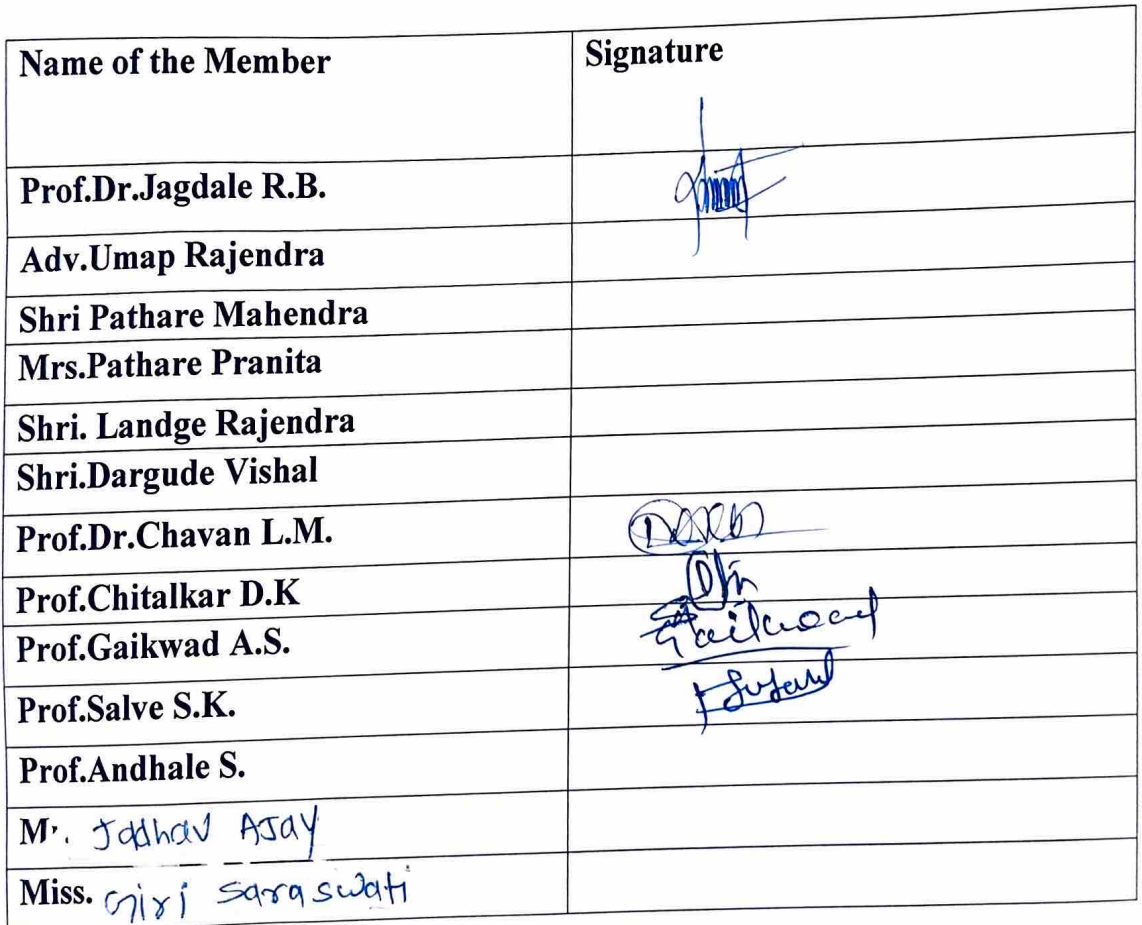 Name of the Member Signature
Prof.Dr.Jagdale R.B.
Adv.Umap Rajendra
Shri Pathare Mahendra
Mrs.Pathare Pranita
Shri. Landge Rajendra
Shri.Dargude Vishal
Prof.Dr.Chavan L.M.
Prof.Chitalkar D.K
Prof.Gaikwad A.S. Gaikwad
Prof.Salve S.K.
Prof.Andhale S.
Mr. Jadhav Ajay
Miss. Giri Saraswati